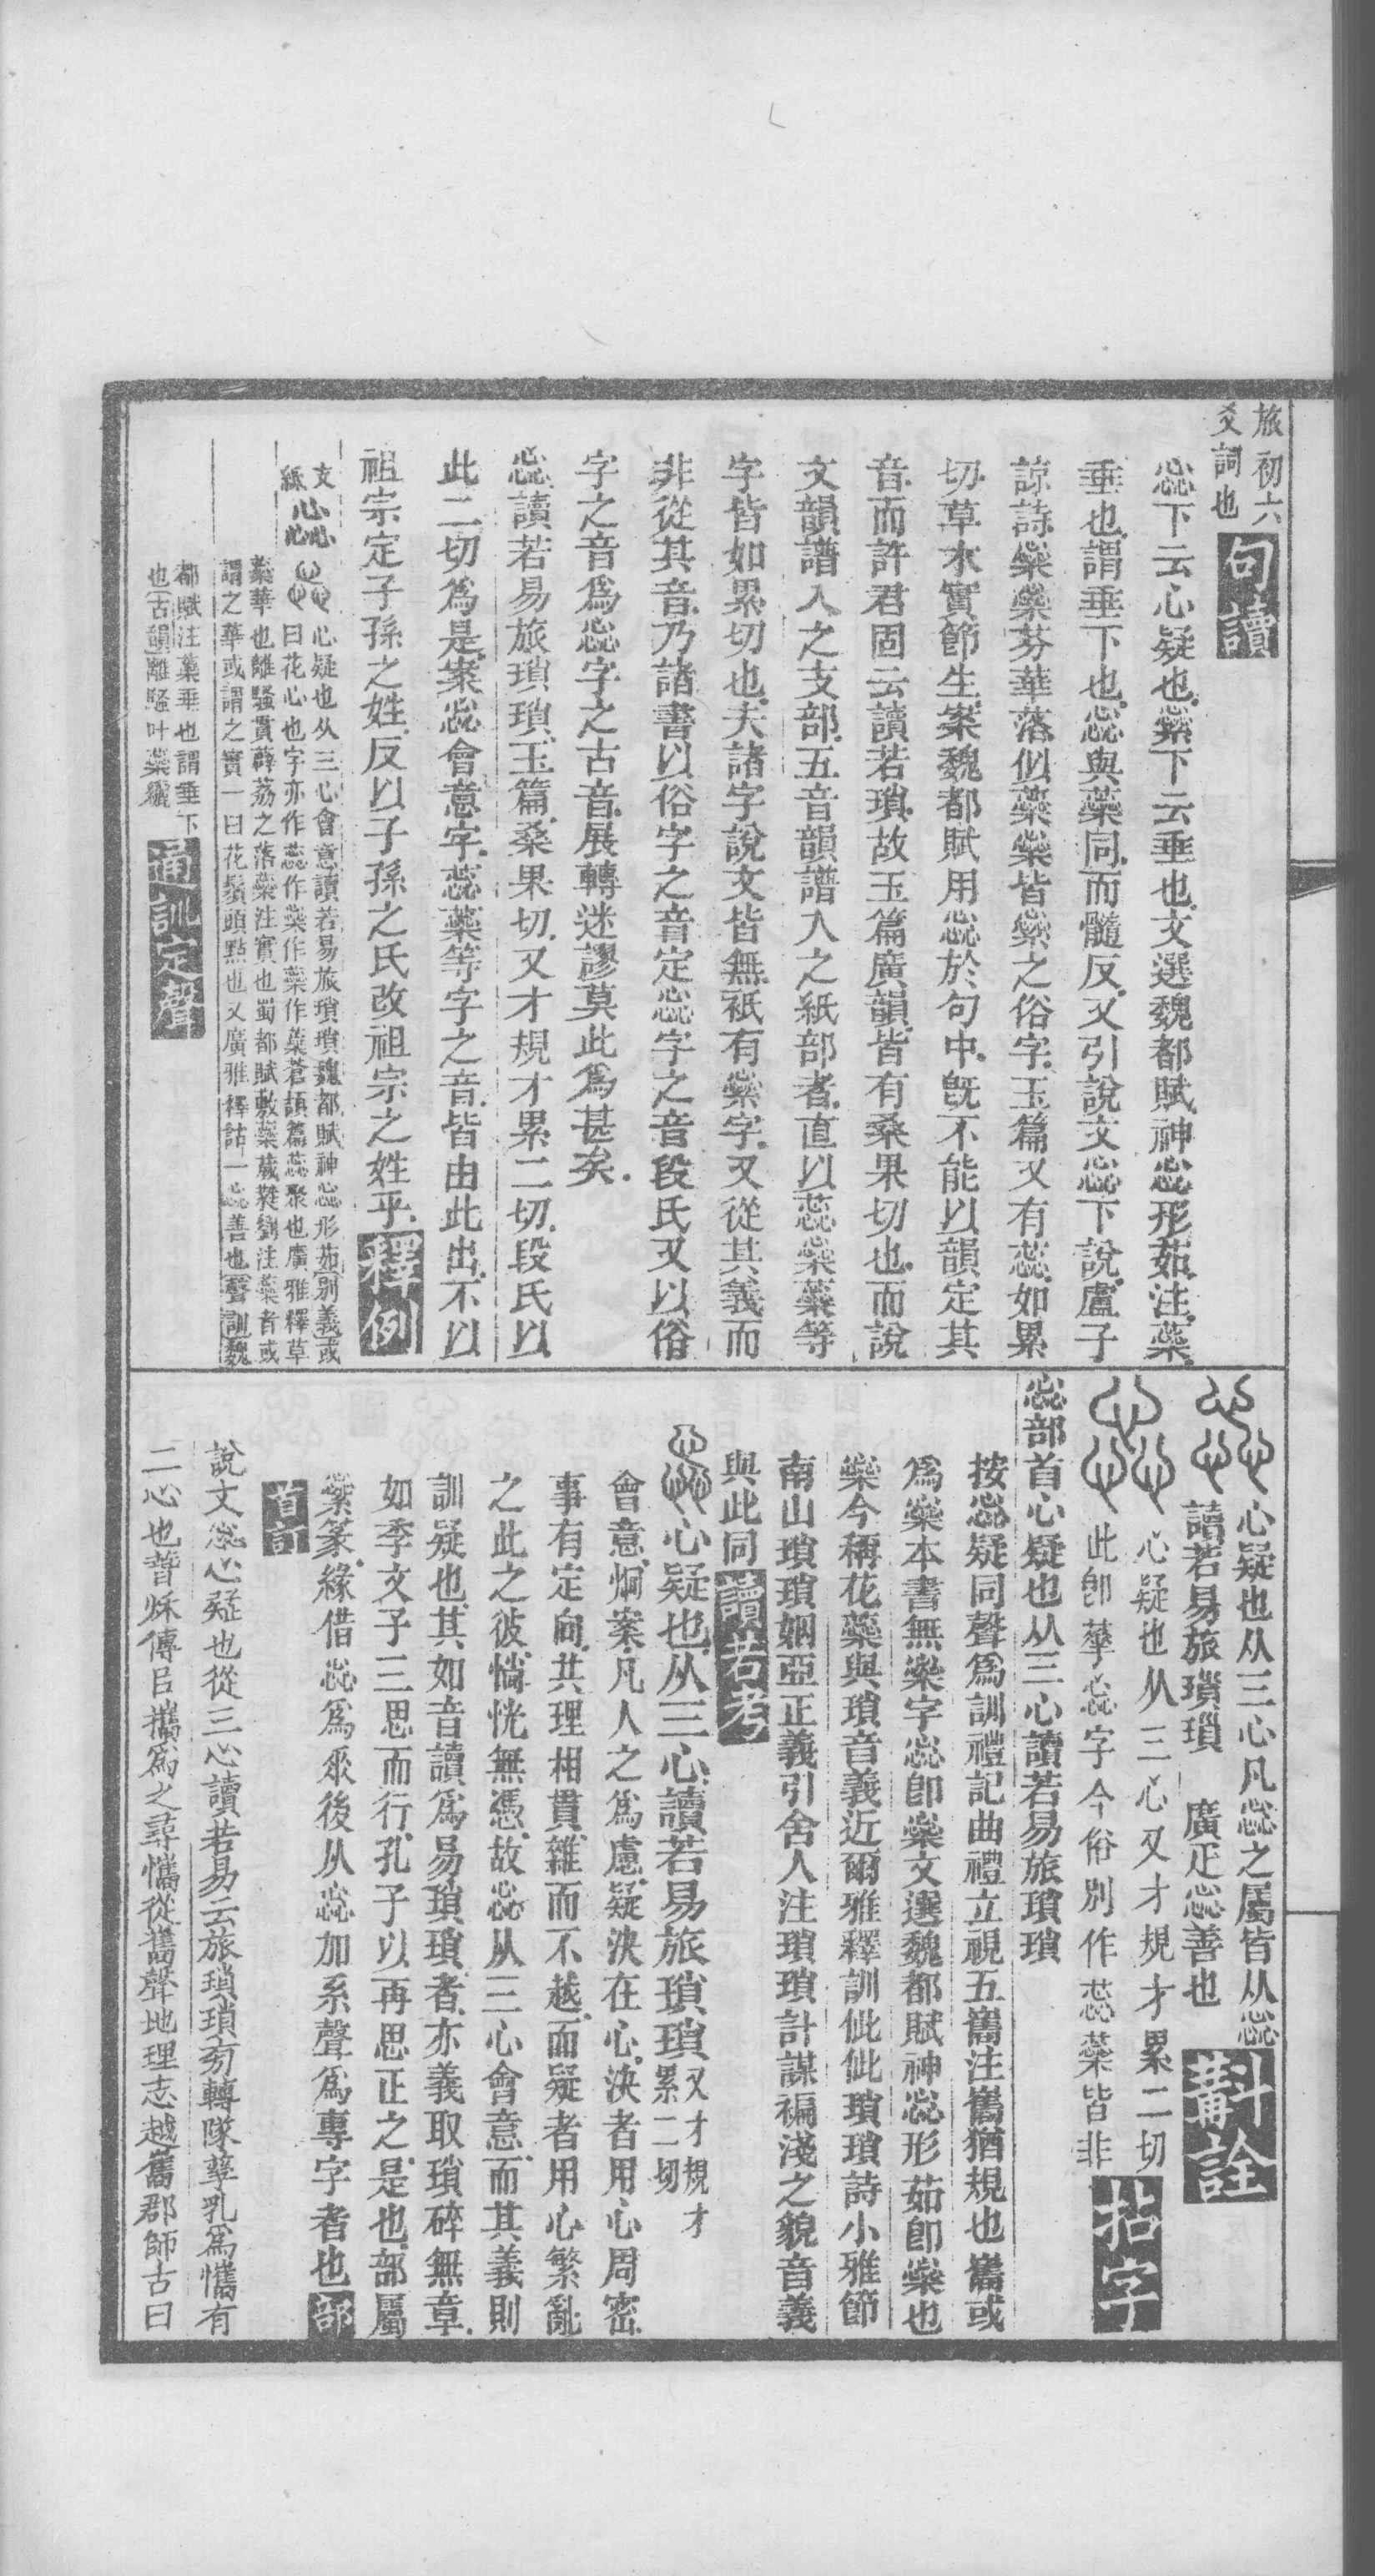 旅初六
爻詞也
句讀
惢下云心疑也繠下云垂也文選魏都賦神惢形茹注蘂
垂也謂垂下也惢與蘂同而髓反又引說文惢下說盧子
諒詩橤橤芬華落似蘂橤皆繠之俗字玉篇又有蕊如累
切草木實節生案魏都賦用惢於句中旣不能以韻定其
音而許君固云讀若瑣故玉篇廣韻皆有桑果切也而說
文韻譜入之支部五音韻譜入之紙部者直以蕊橤蘂等
字皆如累切也夫諸字說文皆無祇有繠字又從其義而
非從其音乃諸書以俗字之音定惢字之音段氏又以俗
字之音爲惢字之古音展轉迷謬莫此爲甚矣
惢讀若易旅瑣瑣玉篇桑果切又才規才累二切段氏以
此二切爲是案惢會意字蕊蘂等字之音皆由此出不以
祖宗定子孫之姓反以子孫之氏改祖宗之姓乎釋例
支
紙惢
心疑也从三心會意讀若易旅瑣瑣魏都賦神惢形茹別義或
曰花心也字亦作蕊作蘂作蘃作橤蒼頡篇蕊聚也廣雅釋草
蘂華也離騷貫薜荔之落蘂注實也蜀都賦敷蘂葳蕤劉注蘂者或
謂之華或謂之實一曰花鬚頭點也又廣雅釋詁一惢善也聲訓魏
都賦注蘂垂也謂垂下
也古韻離騷叶蘂纚
通訓定聲
心疑也从三心凡惢之屬皆从惢
讀若易旅瑣瑣　廣疋惢善也
斠詮
心疑也从三心又才規才累二切
此卽蕐惢字今俗別作蕊蘂皆非
拈字
惢部首心疑也从三心讀若易旅瑣瑣
按惢疑同聲爲訓禮記曲禮立視五巂注巂猶規也巂或
爲橤本書無橤字惢卽橤文選魏都賦神惢形茹卽橤也
橤今稱花蘂與瑣音義近爾雅釋訓佌佌瑣瑣詩小雅節
南山瑣瑣姻亞正義引舍人注瑣瑣計謀褊淺之貌音義
與此同讀若考
心疑也从三心讀若易旅瑣瑣又才規才
累二切
會意炯案凡人之爲慮疑決在心決者用心周密
事有定向其理相貫雜而不越而疑者用心繁亂
之此之彼惝恍無憑故惢从三心會意而其義則
訓疑也其如音讀爲易瑣瑣者亦義取瑣碎無章
如季文子三思而行孔子以再思正之是也部屬
繠篆緣借惢爲衆後从惢加系聲爲專字者也部
首訂
說文惢心疑也從三心讀若易云旅瑣瑣旁轉隊孳乳爲懏有
二心也春秋傳曰攜爲之尋懏從巂聲地理志越巂郡師古曰